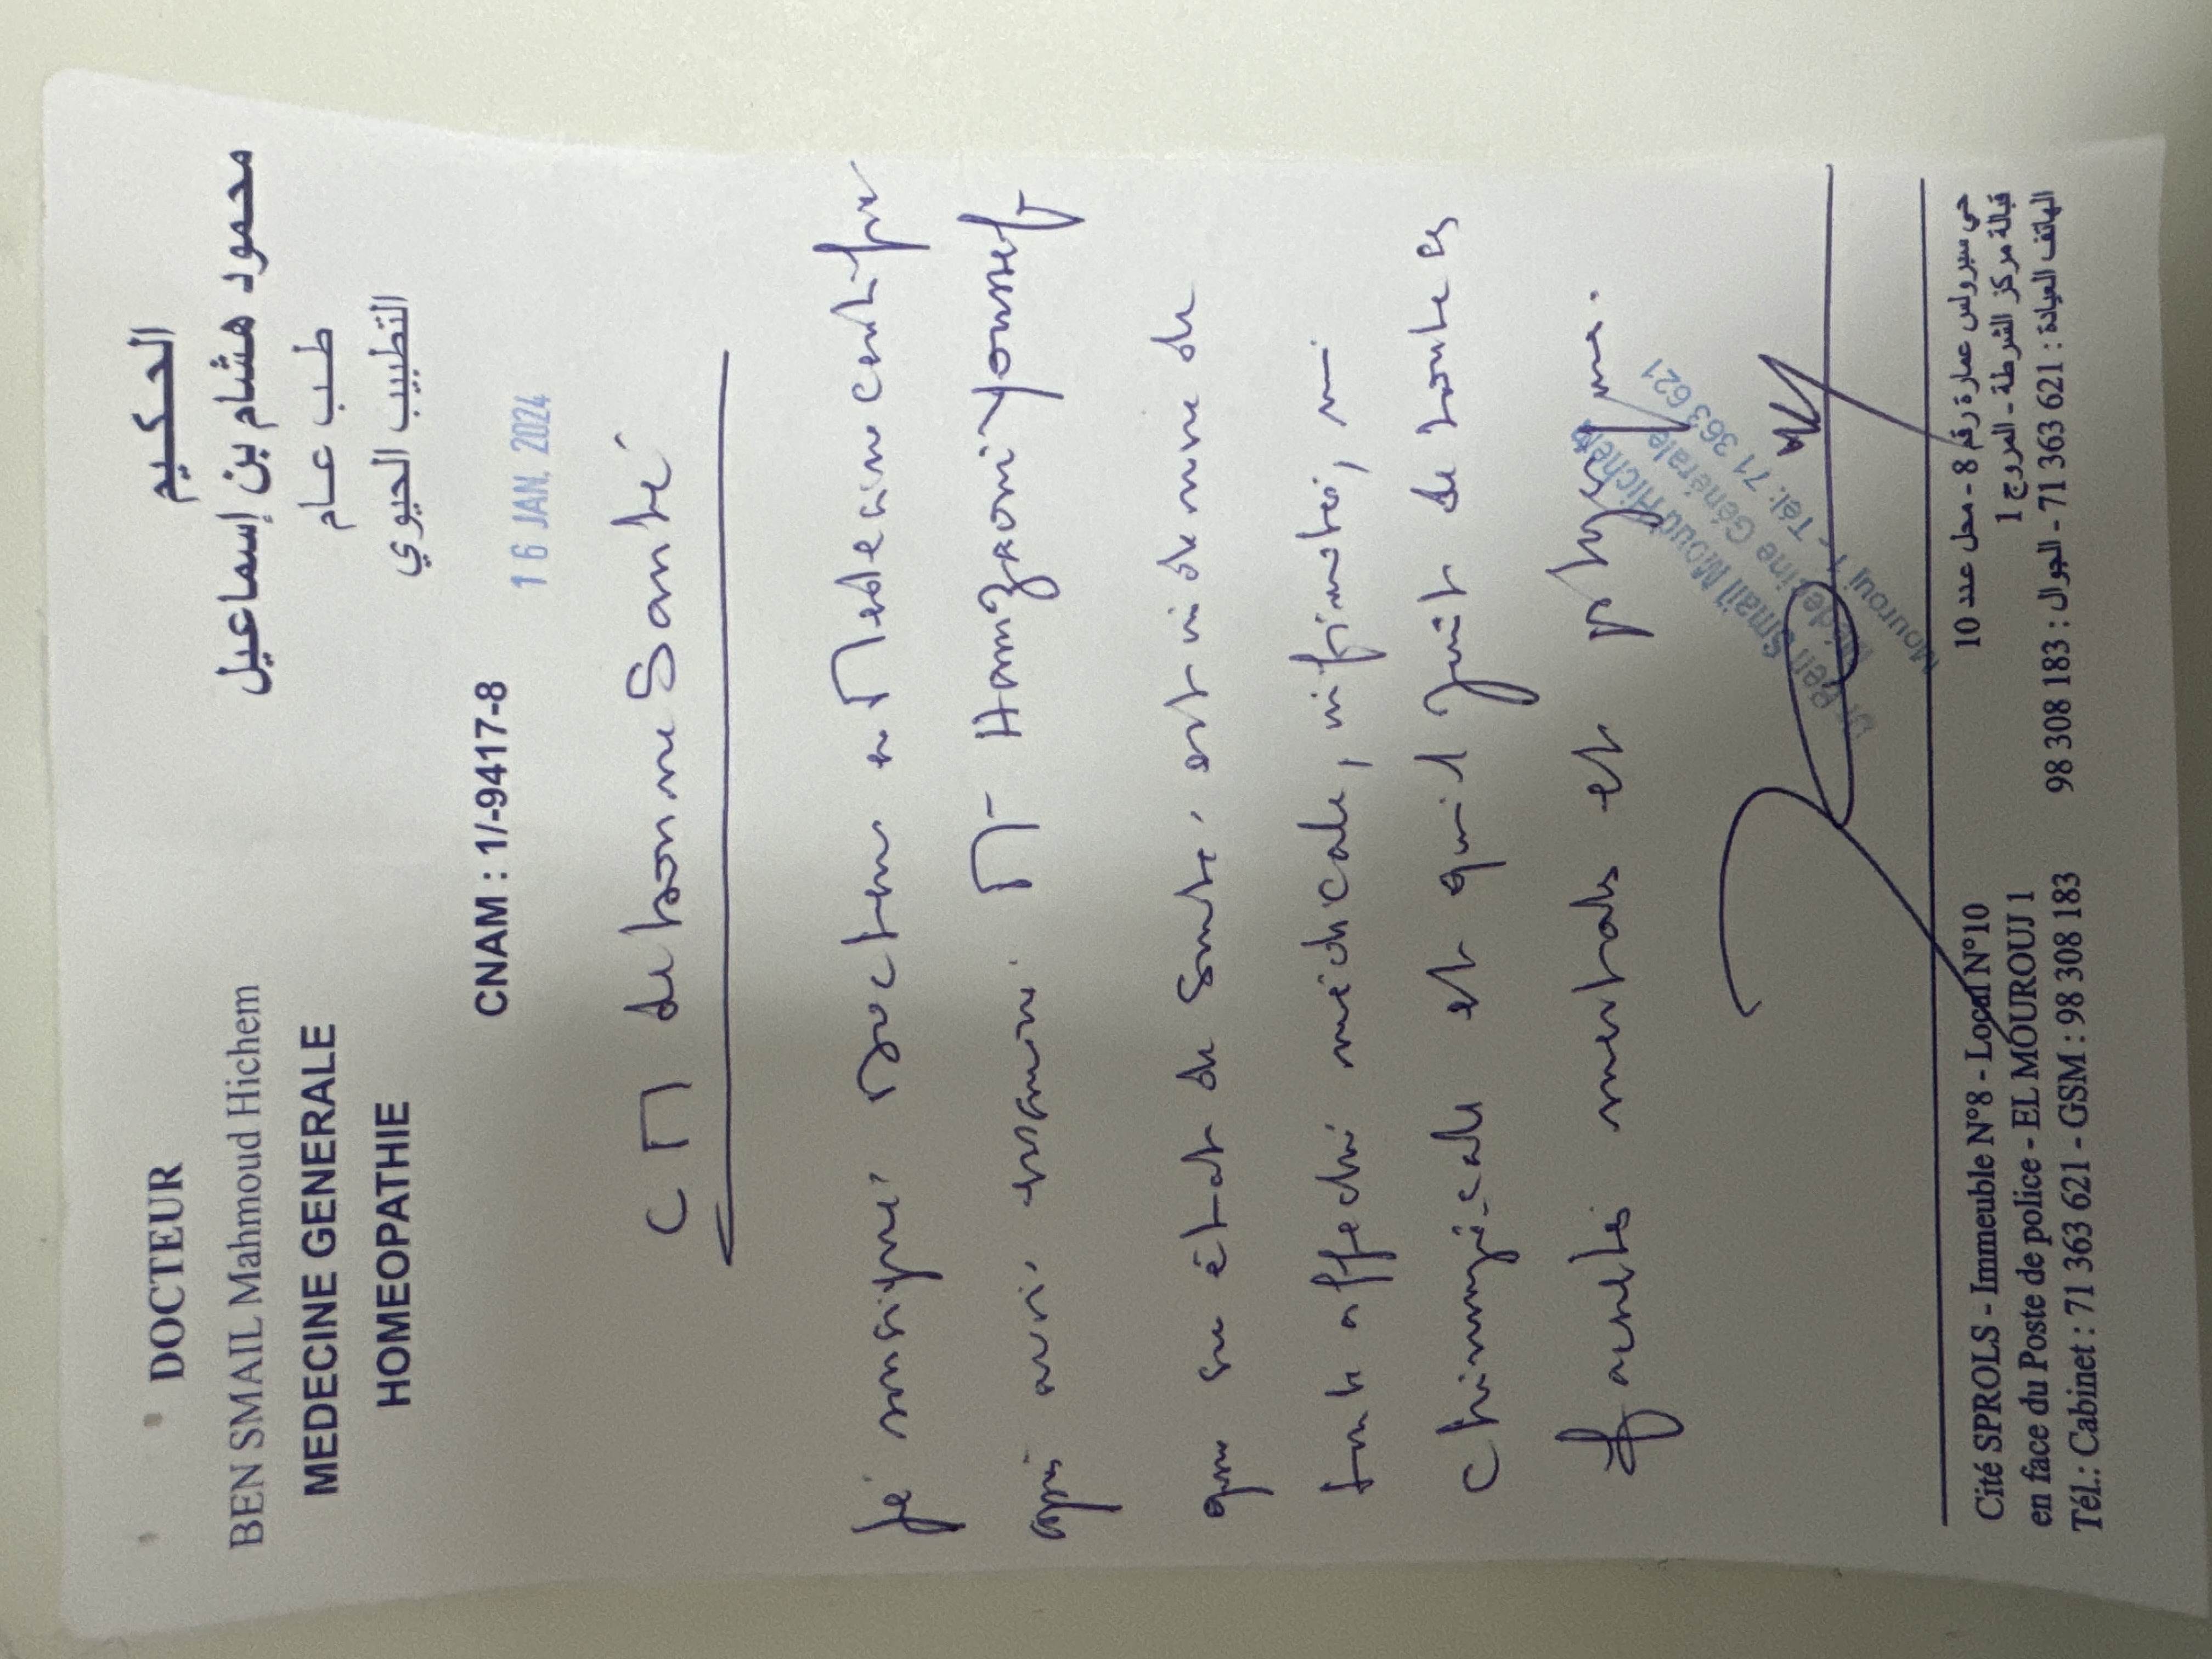 DOCTEUR
BEN SMAIL Mahmoud Hichem
MEDECINE GENERALE
HOMEOPATHIE
الحكيم
محمود هشام بن إسماعيل
طب عام
التطبيب الحيوي
CNAM : 1/-9417-8
16 JAN. 2024
CM de bonne Santé
Je soussigné Docteur en Médecine certifie
après avoir examiné Mr Hamzaoui Youssef
que son état de Santé, est indemne de
toute affection médicale, infirmité, ni
Chirurgicale et qu'il jouit de toutes
facultés mentales et physique.
Dr Ben Smail Moud Hichem
Médecine Générale
Mourouj 1 - Tél: 71 363 621
Cité SPROLS - Immeuble N°8 - Local N°10
en face du Poste de police - EL MOUROUJ 1
Tél.: Cabinet : 71 363 621 - GSM : 98 308 183
حي سبرولس عمارة رقم 8 - محل عدد 10
قبالة مركز الشرطة - المروج 1
الهاتف العيادة : 71 363 621 - الجوال : 98 308 183